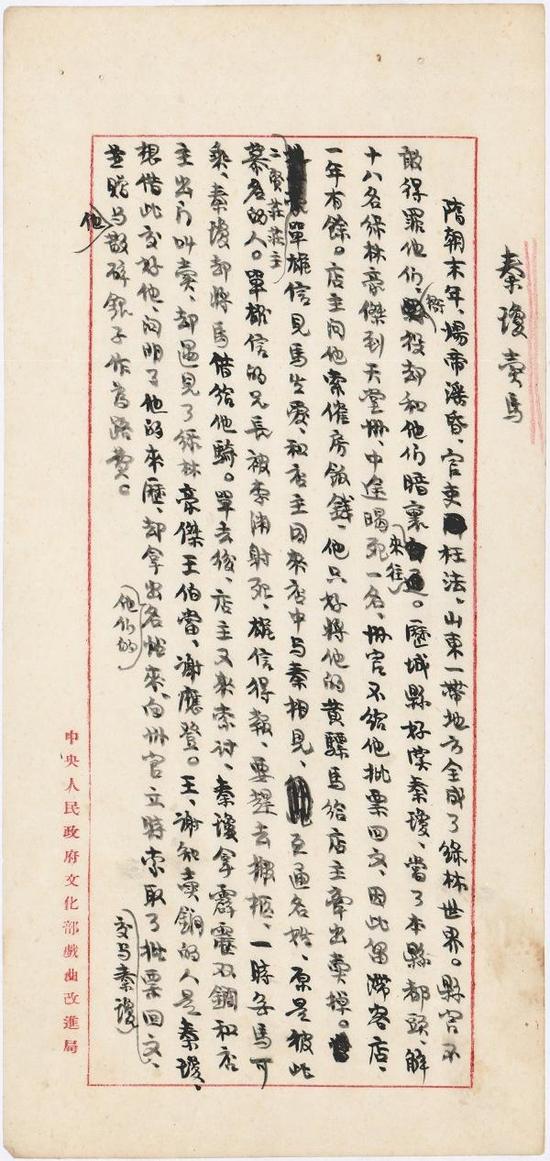 秦瓊賣馬
隋朝末年、煬帝淫昏、官吏枉法、山東一帶地方全成了綠林世界。縣官不
敢得罪他们、衙役却和他们暗裏來往。歷城縣好漢秦瓊、當了本縣都頭、解
十八名綠林豪傑到天堂州、中途暍死一名、州官不給他批票回文、因此留滯客店、
一年有餘。店主向他索催房飯錢、他只好將他的黄驃馬給店主牽出賣掉。
二賢莊莊主單雄信見馬生愛、和店主回來店中与秦相見、互通名姓、原是彼此
慕名的人。單雄信的兄長被李淵射死、雄信得報、要趕去搬柩、一時無馬可
乘、秦瓊却將馬借給他騎。單去後、店主又來索討、秦瓊拿霹靂双鐧和店
主出门叫賣、却遇見了綠林豪傑王伯當、謝應登。王、謝知賣鐧的人是秦瓊、
想借此交好他、问明了他的來歷、却拿出他们的名帖來、向州官立時索取了批票回文、交与秦瓊
並贈与他散碎銀子作為路費。
中央人民政府文化部戲曲改進局